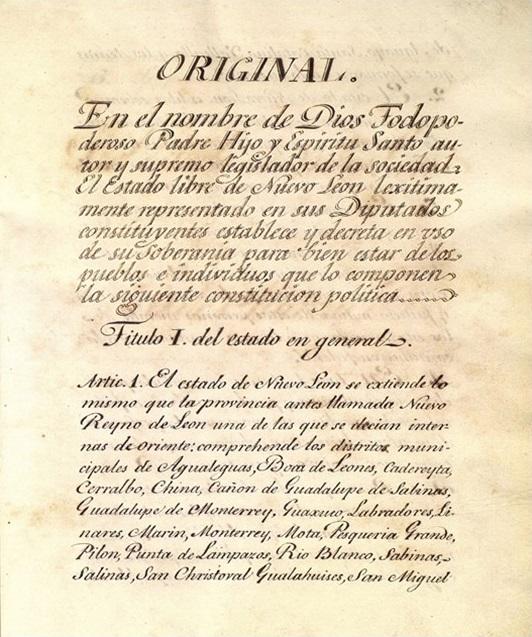 ORIGINAL.
En el nombre de Dios Todopo-
deroso Padre Hijo y Espiritu Santo au-
tor y supremo legislador de la sociedad.
El Estado libre de Nuevo Leon lexitima-
mente representado en sus Diputados
constituyentes establece y decreta en vso
de su Soberania para bien estar de los
pueblos e individuos que lo componen
la siguiente constitucion politica
Titulo I. del estado en general.
Artic. 1. El estado de Nuevo Leon se extiende lo
mismo que la provincia antes llamada Nuevo
Reyno de Leon una de las que se decian inter
nas de oriente: comprehende los distritos muni-
cipales de Agualeguas, Boca de Leones, Cadereyta,
Cerralbo, China, Cañon de Guadalupe de Salinas,
Guadalupe de Monterrey, Guaxuco, Labradores, Li-
nares, Marin, Monterrey, Mota, Pesqueria Grande,
Pilon, Punta de Lampazos, Rio Blanco, Sabinas
Salinas, San Christoval Gualahuises, San Miguel